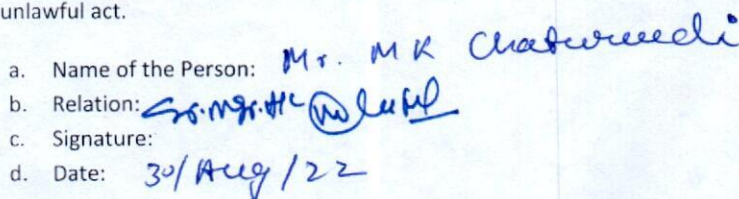 unlawful act.
a. Name of the Person: Mr. MK Chaturvedi
b. Relation: Sr. Mgr. HR
c. Signature:
d. Date: 30/Aug/22